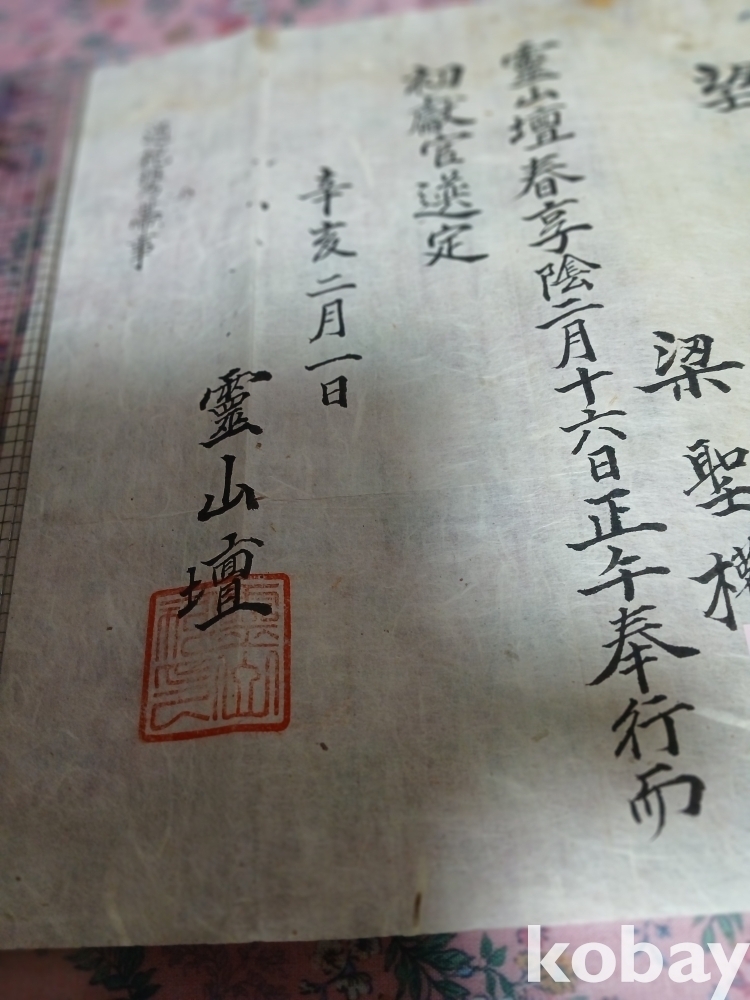 望
梁聖
靈山壇春享陰二月十六日正午奉行而
初獻官選定
辛亥二月一日
靈山壇
kobay